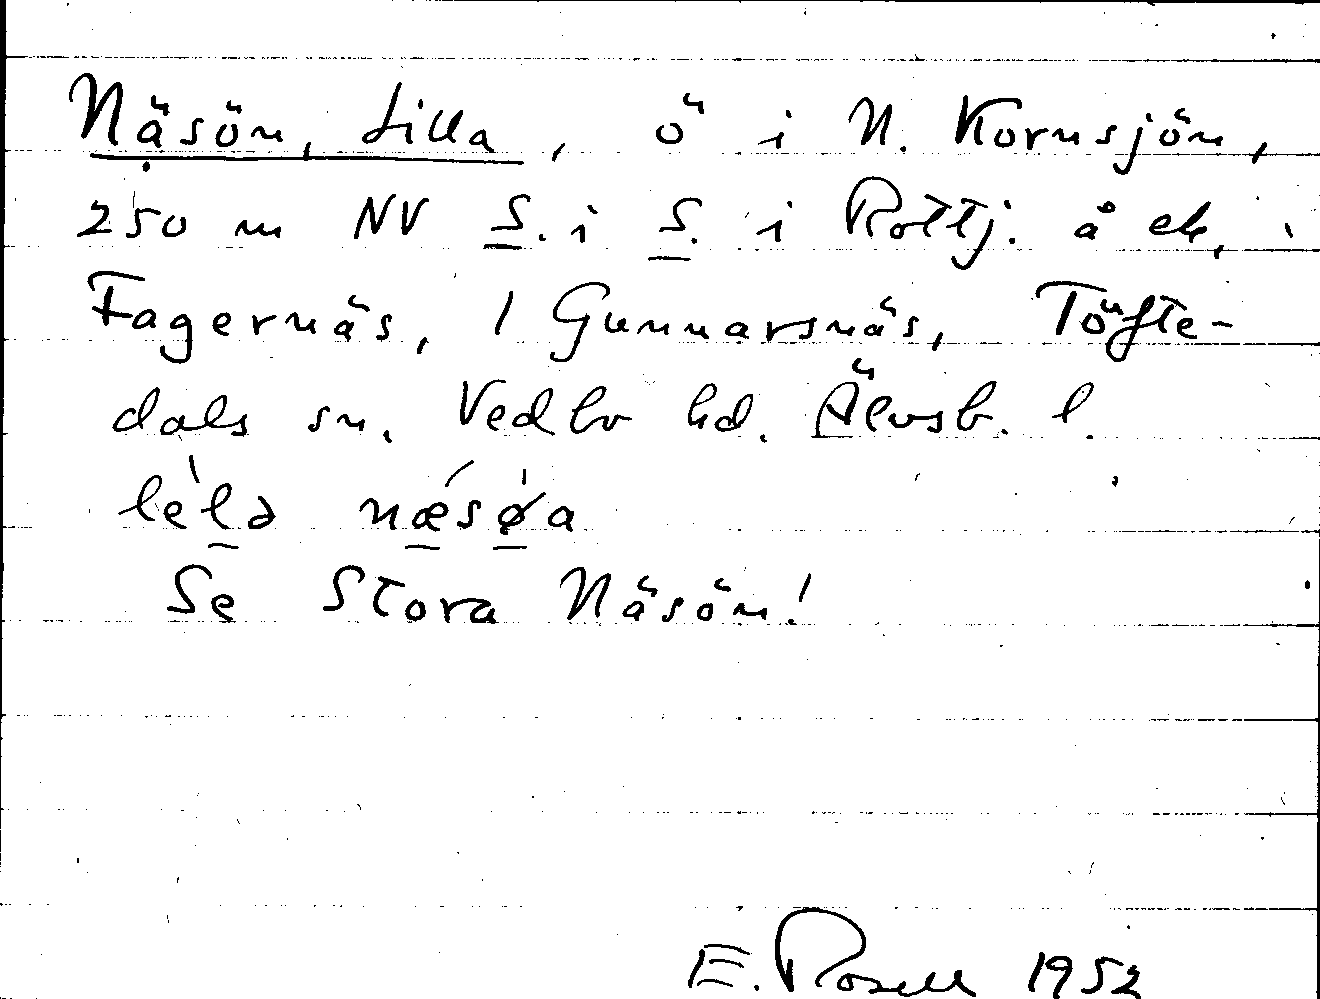 Näsön, Lilla, ö i N. Kornsjön,
250 m NV S. i S. i Rottj. å ek, i
Fagernäs, 1 Gunnarsnäs, Töfte-
dals sn. Vedbo hd. Älvsb. l.
lélə nǽsøa
Se Stora Näsön!
E. Rosell 1952